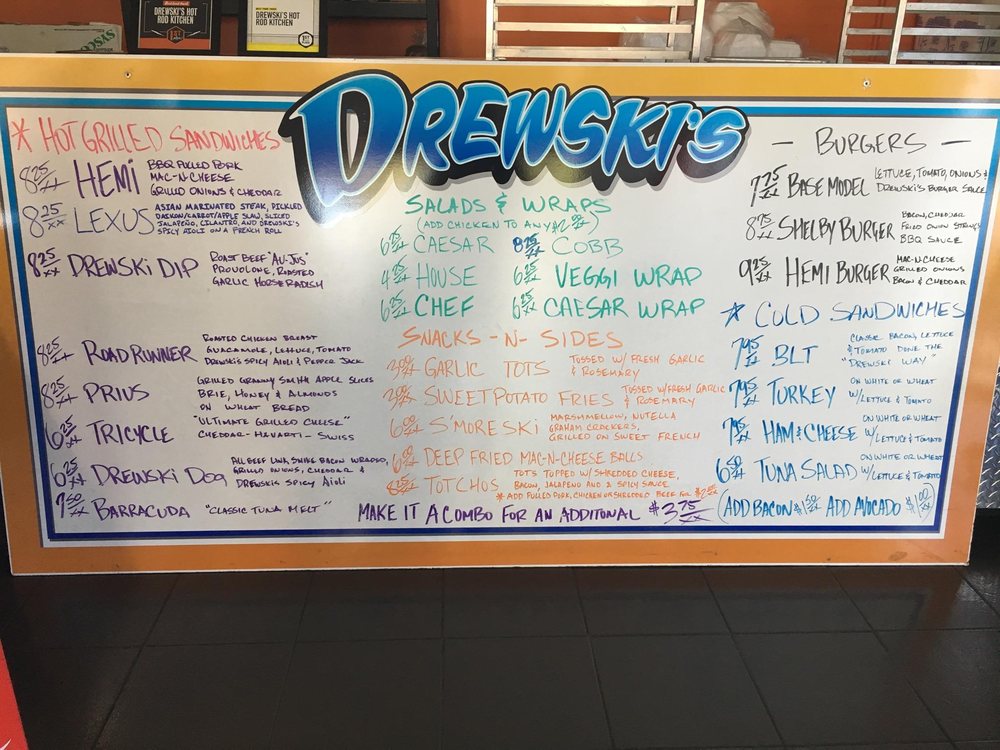 DREWSKI'S HOT
ROD KITCHEN
DREWSKI'S HOT
ROD KITCHEN
DREWSKI'S
* HOT GRILLED SANDWICHES
8.25 HEMI BBQ PULLED PORK
MAC-N-CHEESE
GRILLED ONIONS & CHEDDAR
8.25 LEXUS ASIAN MARINATED STEAK, PICKLED
DAIKON/CARROT/APPLE SLAW, SLICED
JALAPEÑO, CILANTRO, AND DREWSKI'S
SPICY AIOLI ON A FRENCH ROLL
8.25 DREWSKI DIP ROAST BEEF "AU-JUS"
PROVOLONE, ROASTED
GARLIC HORSERADISH
8.25 ROADRUNNER ROASTED CHICKEN BREAST
GUACAMOLE, LETTUCE, TOMATO
DREWSKI'S SPICY AIOLI & PEPPER JACK
8.25 PRIUS GRILLED GRANNY SMITH APPLE SLICES
BRIE, HONEY & ALMONDS
ON WHEAT BREAD
6.25 TRICYCLE "ULTIMATE GRILLED CHEESE"
CHEDDAR-HAVARTI-SWISS
6.25 DREWSKI DOG ALL BEEF LINK, BACON WRAPPED,
GRILLED ONIONS, CHEDDAR &
DREWSKI'S SPICY AIOLI
7.50 BARRACUDA "CLASSIC TUNA MELT"
SALADS & WRAPS
(ADD CHICKEN TO ANY $2.00)
6.25 CAESAR 8.25 COBB
4.25 HOUSE 6.25 VEGGI WRAP
6.25 CHEF 6.25 CAESAR WRAP
SNACKS -N- SIDES
GARLIC TOTS TOSSED W/ FRESH GARLIC
& ROSEMARY
SWEET POTATO FRIES TOSSED W/ FRESH GARLIC
& ROSEMARY
6.00 S'MORESKI MARSHMELLOW, NUTELLA
GRAHAM CRACKERS,
GRILLED ON SWEET FRENCH
6.00 DEEP FRIED MAC-N-CHEESE BALLS
8.25 TOTCHOS TOTS TOPPED W/ SHREDDED CHEESE,
BACON, JALAPENO AND 2 SPICY SAUCE
* ADD PULLED PORK, CHICKEN OR SHREDDED BEEF FOR
MAKE IT A COMBO FOR AN ADDITONAL $3.75
- BURGERS -
7.75 BASE MODEL LETTUCE, TOMATO, ONIONS &
DREWSKI'S BURGER SAUCE
8.75 SHELBY BURGER BACON, CHEDDAR
FRIED ONION STRINGS
BBQ SAUCE
9.25 HEMI BURGER MAC-N-CHEESE
GRILLED ONIONS
BACON & CHEDDAR
* COLD SANDWICHES
7.95 BLT CLASSIC BACON, LETTUCE
& TOMATO DONE THE
"DREWSKI WAY"
7.95 TURKEY ON WHITE OR WHEAT
W/ LETTUCE & TOMATO
7.95 HAM & CHEESE ON WHITE OR WHEAT
W/ LETTUCE & TOMATO
6.50 TUNA SALAD ON WHITE OR WHEAT
W/ LETTUCE & TOMATO
(ADD BACON $1.50 ADD AVOCADO $1.00)